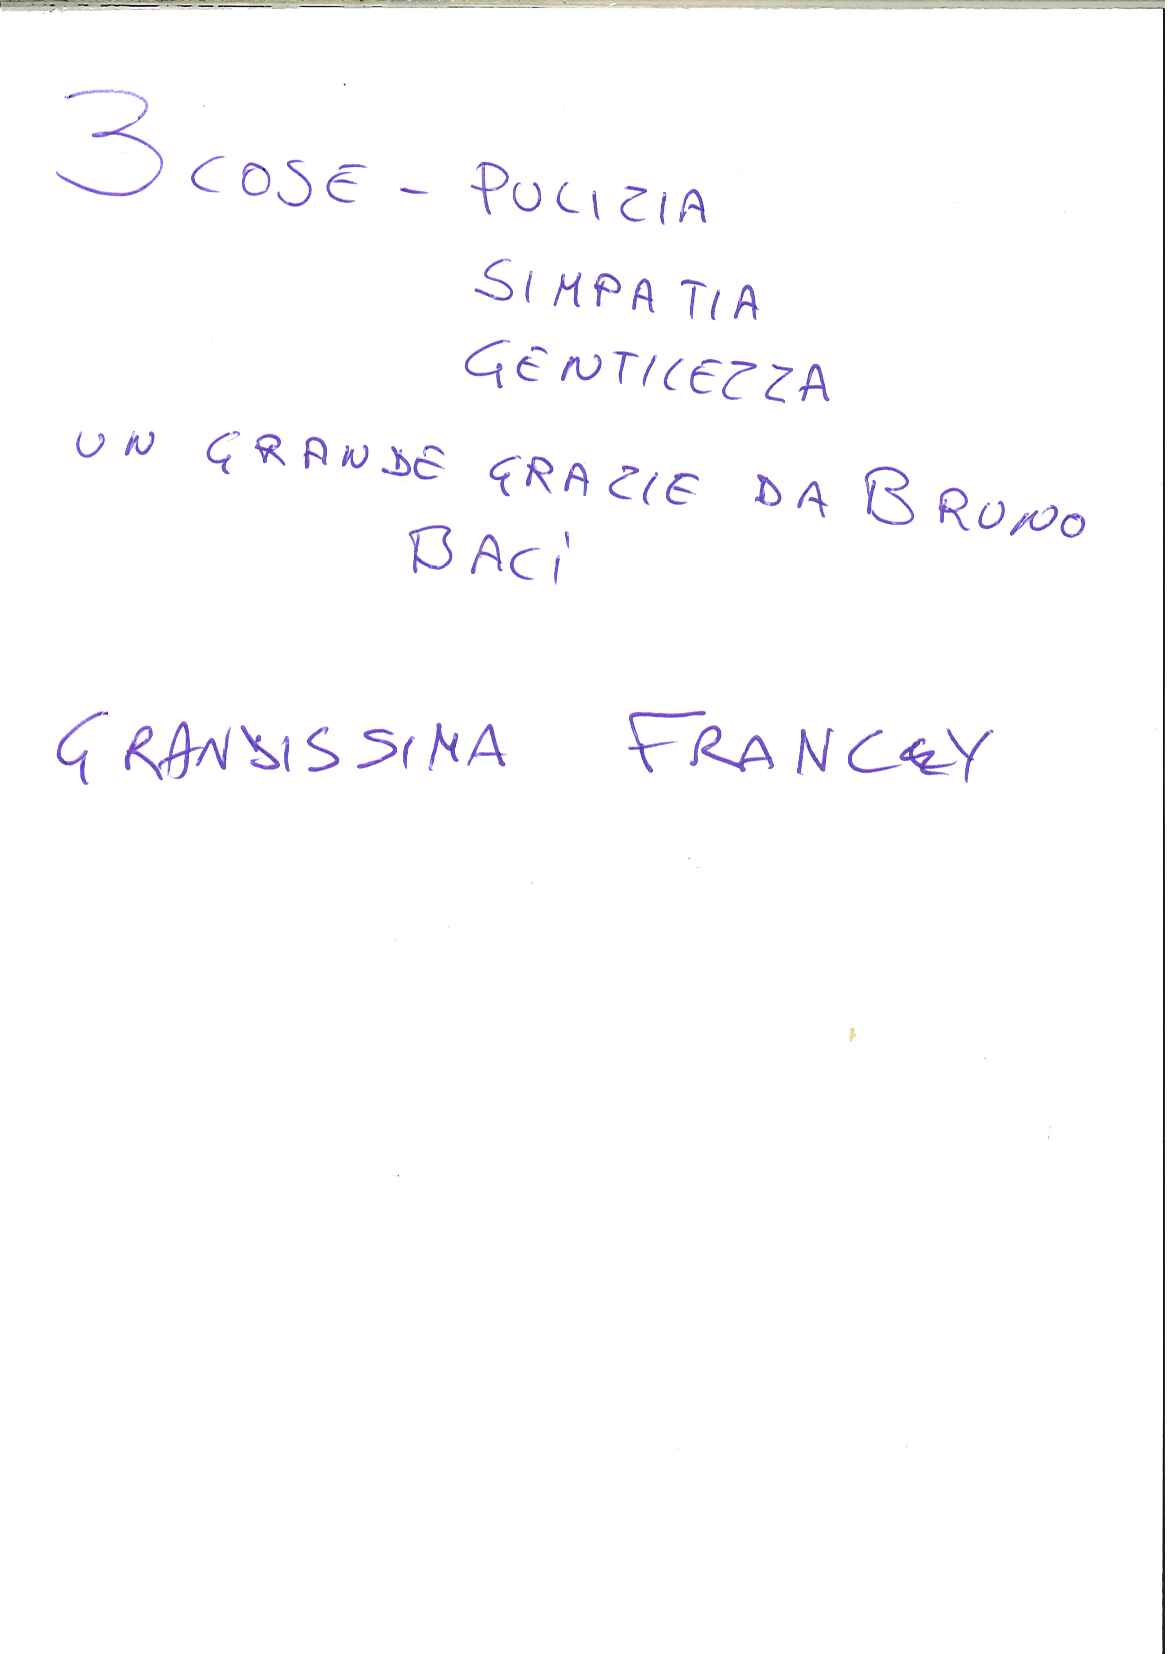 3 COSE - PULIZIA
SIMPATIA
GENTILEZZA
UN GRANDE GRAZIE DA BRUNO
BACI
GRANDISSIMA FRANCEY